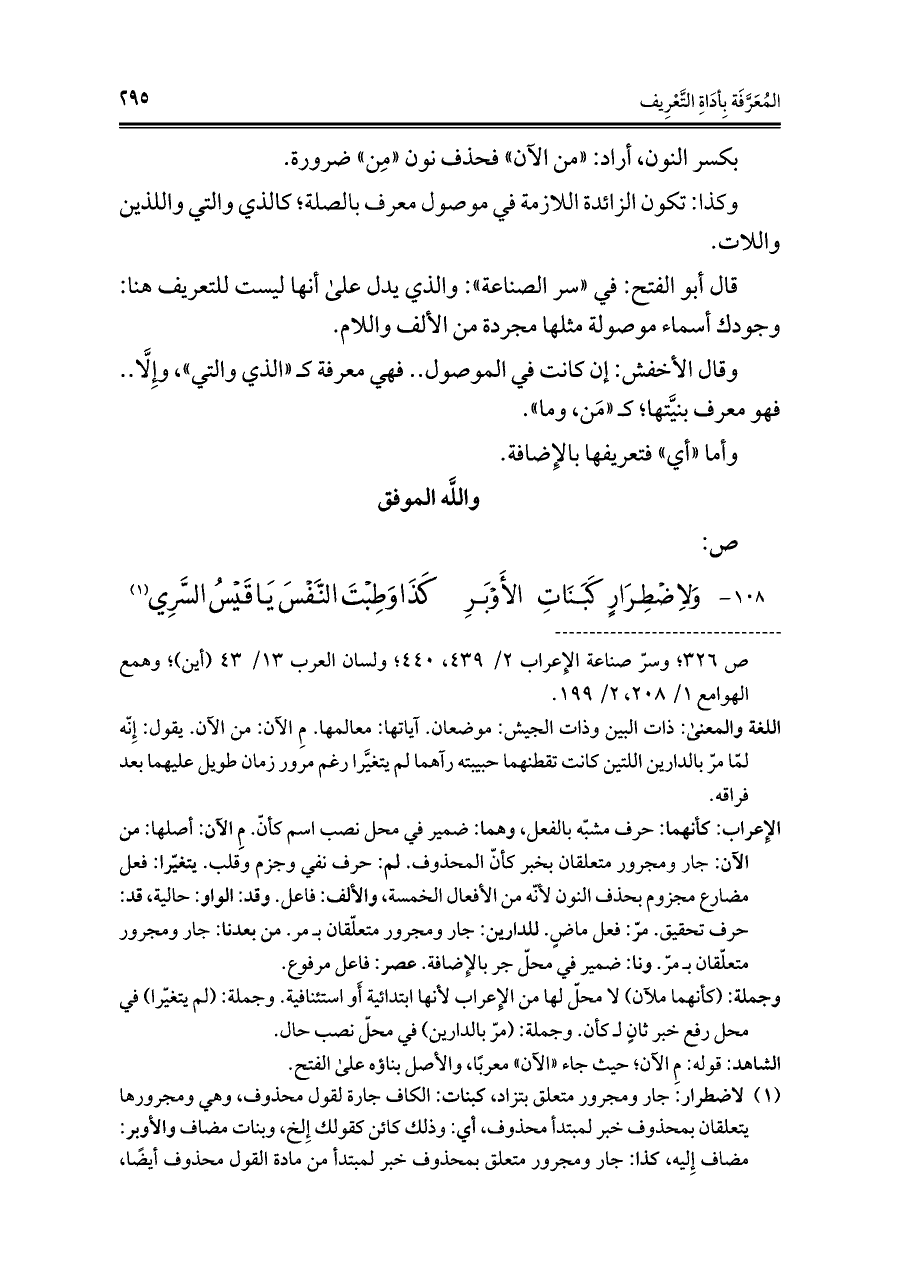 المُعَرَّفَة بِأدَاةِ التَّعْرِيف ٢٩٥
بكسر النون، أراد: «من الآن» فحذف نون «مِن» ضرورة.
وكذا: تكون الزائدة اللازمة في موصول معرف بالصلة؛ كالذي والتي واللذين
واللات.
قال أبو الفتح: في «سر الصناعة»: والذي يدل علىٰ أنها ليست للتعريف هنا:
وجودك أسماء موصولة مثلها مجردة من الألف واللام.
وقال الأخفش: إن كانت في الموصول.. فهي معرفة كـ «الذي والتي»، وإِلَّا..
فهو معرف بنيَّتها؛ كـ «مَن، وما».
وأما «أي» فتعريفها بالإضافة.
واللَّه الموفق
ص:
١٠٨- وَلِاضْطِرَارٍ كَبَنَاتِ الأَوْبَرِ كَذَا وَطِبْتَ النَّفْسَ يَا قَيْسُ السَّرِي(١)
ص ٣٢٦؛ وسرّ صناعة الإعراب ٢/ ٤٣٩، ٤٤٠؛ ولسان العرب ١٣/ ٤٣ (أين)؛ وهمع
الهوامع ١/ ٢٠٨، ٢/ ١٩٩.
اللغة والمعنىٰ: ذات البين وذات الجيش: موضعان. آياتها: معالمها. مِ الآن: من الآن. يقول: إنّه
لمّا مرّ بالدارين اللتين كانت تقطنهما حبيبته رآهما لم يتغيَّرا رغم مرور زمان طويل عليهما بعد
فراقه.
الإعراب: كأنهما: حرف مشبّه بالفعل، وهما: ضمير في محل نصب اسم كأنّ. مِ الآن: أصلها: من
الآن: جار ومجرور متعلقان بخبر كأنّ المحذوف. لم: حرف نفي وجزم وقلب. يتغيّرا: فعل
مضارع مجزوم بحذف النون لأنّه من الأفعال الخمسة، والألف: فاعل. وقد: الواو: حالية، قد:
حرف تحقيق. مرّ: فعل ماضٍ. للدارين: جار ومجرور متعلّقان بـ مر. من بعدنا: جار ومجرور
متعلّقان بـ مرّ. ونا: ضمير في محلّ جر بالإضافة. عصر: فاعل مرفوع.
وجملة: (كأنهما ملآن) لا محلّ لها من الإعراب لأنها ابتدائية أو استئنافية. وجملة: (لم يتغيّرا) في
محل رفع خبر ثانٍ لـ كأن. وجملة: (مرّ بالدارين) في محلّ نصب حال.
الشاهد: قوله: مِ الآن؛ حيث جاء «الآن» معربًا، والأصل بناؤه علىٰ الفتح.
(١) لاضطرار: جار ومجرور متعلق بتزاد، كبنات: الكاف جارة لقول محذوف، وهي ومجرورها
يتعلقان بمحذوف خبر لمبتدأ محذوف، أي: وذلك كائن كقولك إلخ، وبنات مضاف والأوبر:
مضاف إليه، كذا: جار ومجرور متعلق بمحذوف خبر لمبتدأ من مادة القول محذوف أيضًا،